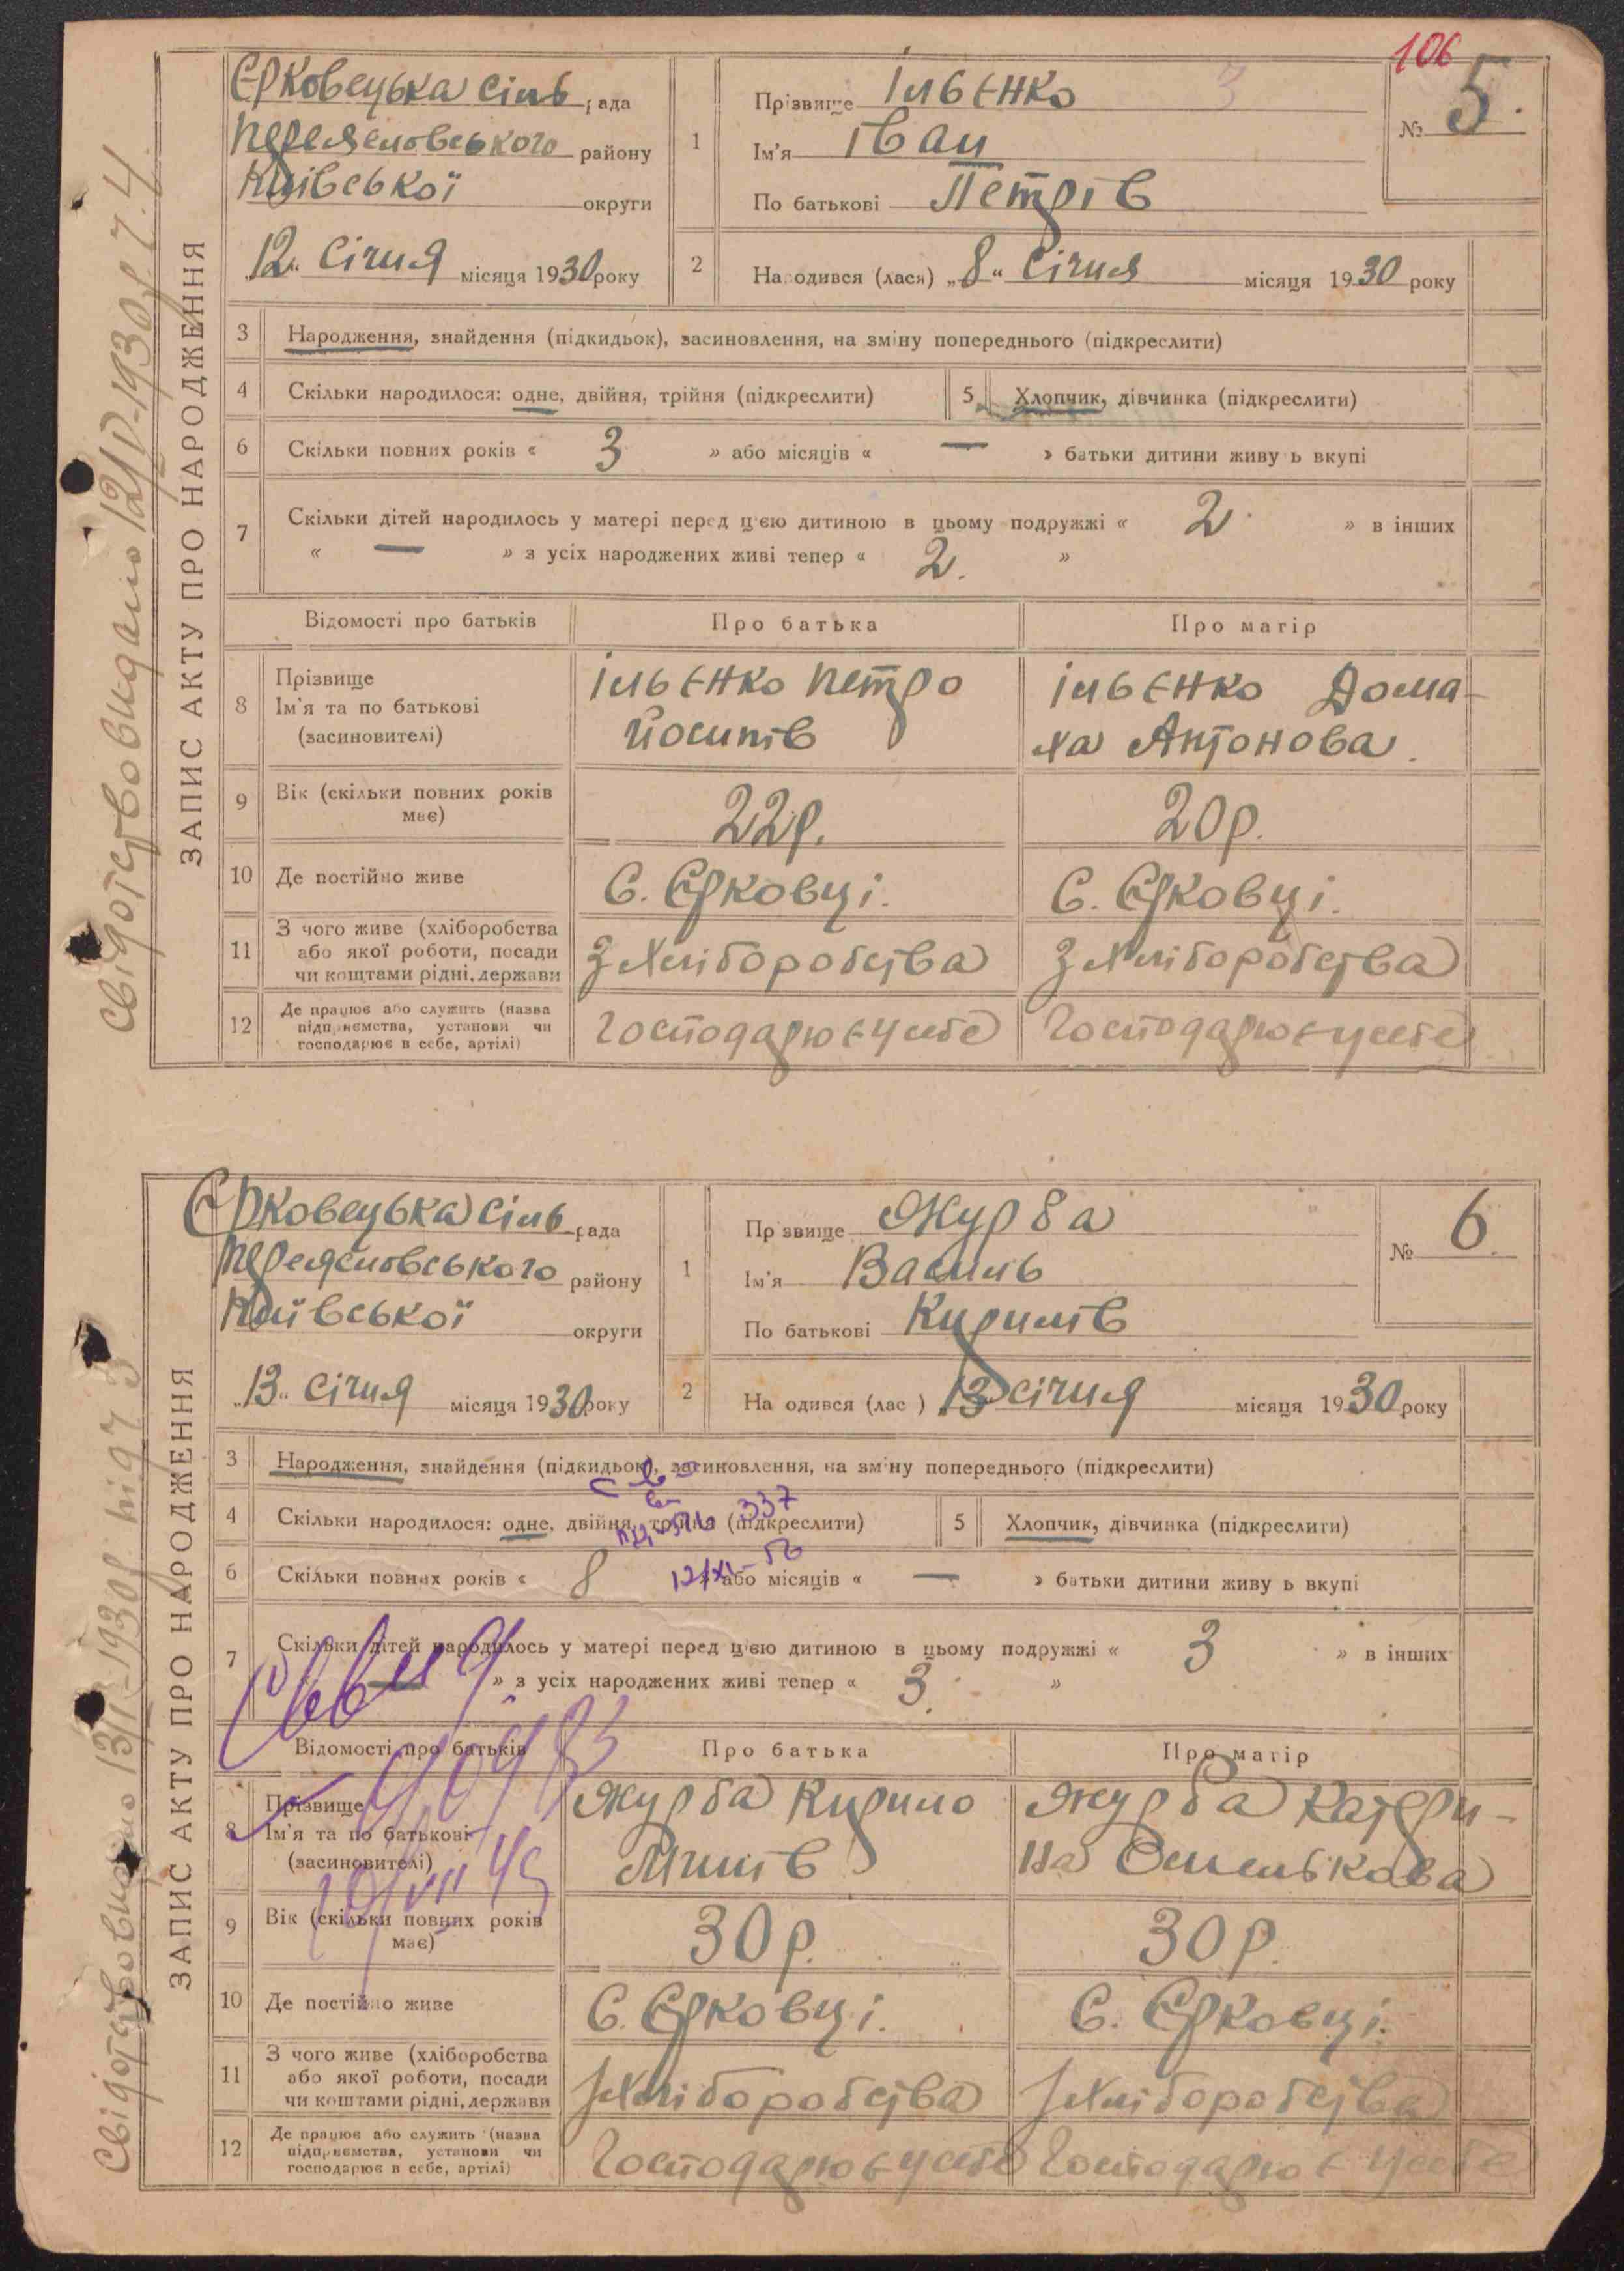 106
ЗАПИС АКТУ ПРО НАРОДЖЕННЯ
Свідотство видано 12/І-1930р. 7.4
Єрковецька сіль рада
Переяславського району
Київської округи
„12„ Січня місяця 1930 року
1
Прізвище Ільєнко
Ім'я Іван
По батькові Петрів
№ 5.
2
Народився (лася) „8„ Січня місяця 1930 року
3 Народження, знайдення (підкидьок), засиновлення, на зміну попереднього (підкреслити)
4 Скільки народилося: одне, двійня, трійня (підкреслити) 5 Хлопчик, дівчинка (підкреслити)
6 Скільки повних років « 3 » або місяців « — » батьки дитини живуть вкупі
7 Скільки дітей народилось у матері перед цією дитиною в цьому подружжі « 2 » в інших
« — » з усіх народжених живі тепер « 2. »
Відомості про батьків Про батька Про матір
8 Прізвище
Ім'я та по батькові
(засиновителі)
Ільєнко Петро
Йосипів
Ільєнко Дома-
ха Антонова.
9 Вік (скільки повних років
має)
22р.
20р.
10 Де постійно живе с. Єрковці. с. Єрковці.
11 З чого живе (хліборобства
або якої роботи, посади
чи коштами рідні, держави
З Хліборобства З Хліборобства
12 Де працює або служить (назва
підприємства, установи чи
господарює в себе, артілі)
Господарює у себе Господарює у себе
ЗАПИС АКТУ ПРО НАРОДЖЕННЯ
Свідотство видано 13/І-1930р. під ч 3
Єрковецька сіль рада
Переяславського району
Київської округи
„13„ Січня місяця 1930 року
1
Прізвище Журба
Ім'я Василь
По батькові Кирилів
№ 6.
2
Народився (лася) „13 Січня місяця 1930 року
3 Народження, знайдення (підкидьок), засиновлення, на зміну попереднього (підкреслити)
4 Скільки народилося: одне, двійня, трійня (підкреслити) 5 Хлопчик, дівчинка (підкреслити)
337
12/XI-56
6 Скільки повних років « 8 » або місяців « — » батьки дитини живуть вкупі
7 Скільки дітей народилось у матері перед цією дитиною в цьому подружжі « 3 » в інших
« — » з усіх народжених живі тепер « 3. »
Відомості про батьків Про батька Про матір
8 Прізвище
Ім'я та по батькові
(засиновителі)
Журба Кирило
Журба Катери-
на Омелькова
9 Вік (скільки повних років
має)
30р.
30р.
10 Де постійно живе с. Єрковці. с. Єрковці.
11 З чого живе (хліборобства
або якої роботи, посади
чи коштами рідні, держави
З Хліборобства З Хліборобства
12 Де працює або служить (назва
підприємства, установи чи
господарює в себе, артілі)
Господарює у себе Господарює у себе